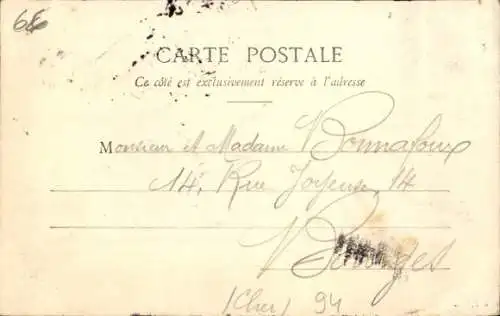 66
CARTE POSTALE
Ce côté est exclusivement réservé à l'adresse
Monsieur et Madame Bonnafoux
14, Rue Joyeuse, 14
Bourges
(Cher) 94